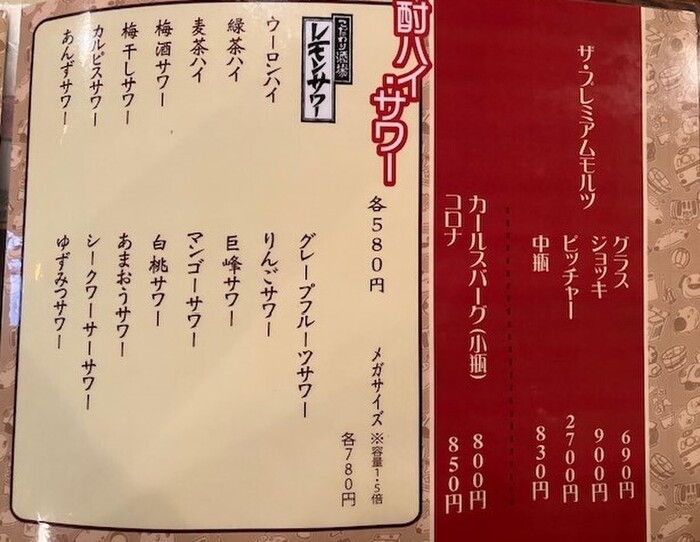 ザ・プレミアムモルツ
グラス 690円
ジョッキ 900円
ピッチャー 2700円
中瓶 830円
カールスバーグ(小瓶) 800円
コロナ 850円
酎ハイ・サワー
各580円
メガサイズ ※容量1・5倍
各780円
こだわり酒場
レモンサワー
ウーロンハイ
緑茶ハイ
麦茶ハイ
梅酒サワー
梅干しサワー
カルピスサワー
あんずサワー
グレープフルーツサワー
りんごサワー
巨峰サワー
マンゴーサワー
白桃サワー
あまおうサワー
シークワーサーサワー
ゆずみつサワー